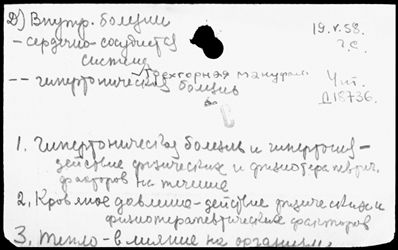 Д) Внутр. болезни
19.V.58.
– сердечно-сосудистая
система
Г.С.
-- гипертоническая болезнь
Трехгорная мануфак.
Чит.
Д18736.
1. Гипертоническая болезнь и гипертония –
действие физических и физиотерапевтич.
факторов на течение
2. Кровяное давление – действие физических и
физиотерапевтических факторов
3. Тепло – влияние на организм